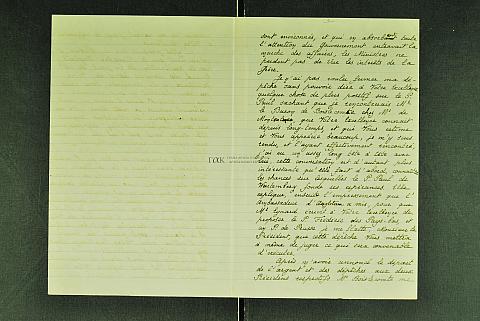 sont environnés, et qui en absorbant toute
l'attention du Gouvernement entravent la
marche des affaires, les Ministres ne
perdent pas de vue les intérêts de la
Grèce.
Je n'ai pas voulu fermer ma dé-
pêche sans pouvoir dire à Votre Excellence
quelque chose de plus positif sur le P.
Paul sachant que je rencontrerais Mr.
le Baron de Boislecomte chez Mr. de
que Votre Excellence connait
depuis long-temps et que Vous estimez
et Vous appréciez beaucoup, je m'y suis
rendu, et l'ayant effectivement rencontré,
j'ai eu un assez long tête à tête avec
lui, cette conversation est d'autant plus
intéressante qu'elle tout d'abord
les chances sur lesquelles le P. Paul de
Wurtemberg fonde ses espérances. Elle
explique, ensuite l'empressement que l'
Ambassadeur d'Angleterre a mis, pour que
Mr. Eynard écrivit à Votre Excellence de
proposer le P. Frédéric des Pays-Bas, et
un P. de Prusse je me flatte, Monsieur le
Président, que cette dépêche Vous mettra
à même de juger ce qui sera convenable
d'exécuter.
Après m'avoir annoncé le départ
de l'argent et des dépêches aux deux
Présidens respectifs Mr. Boislecomte me
ΓΑΚ